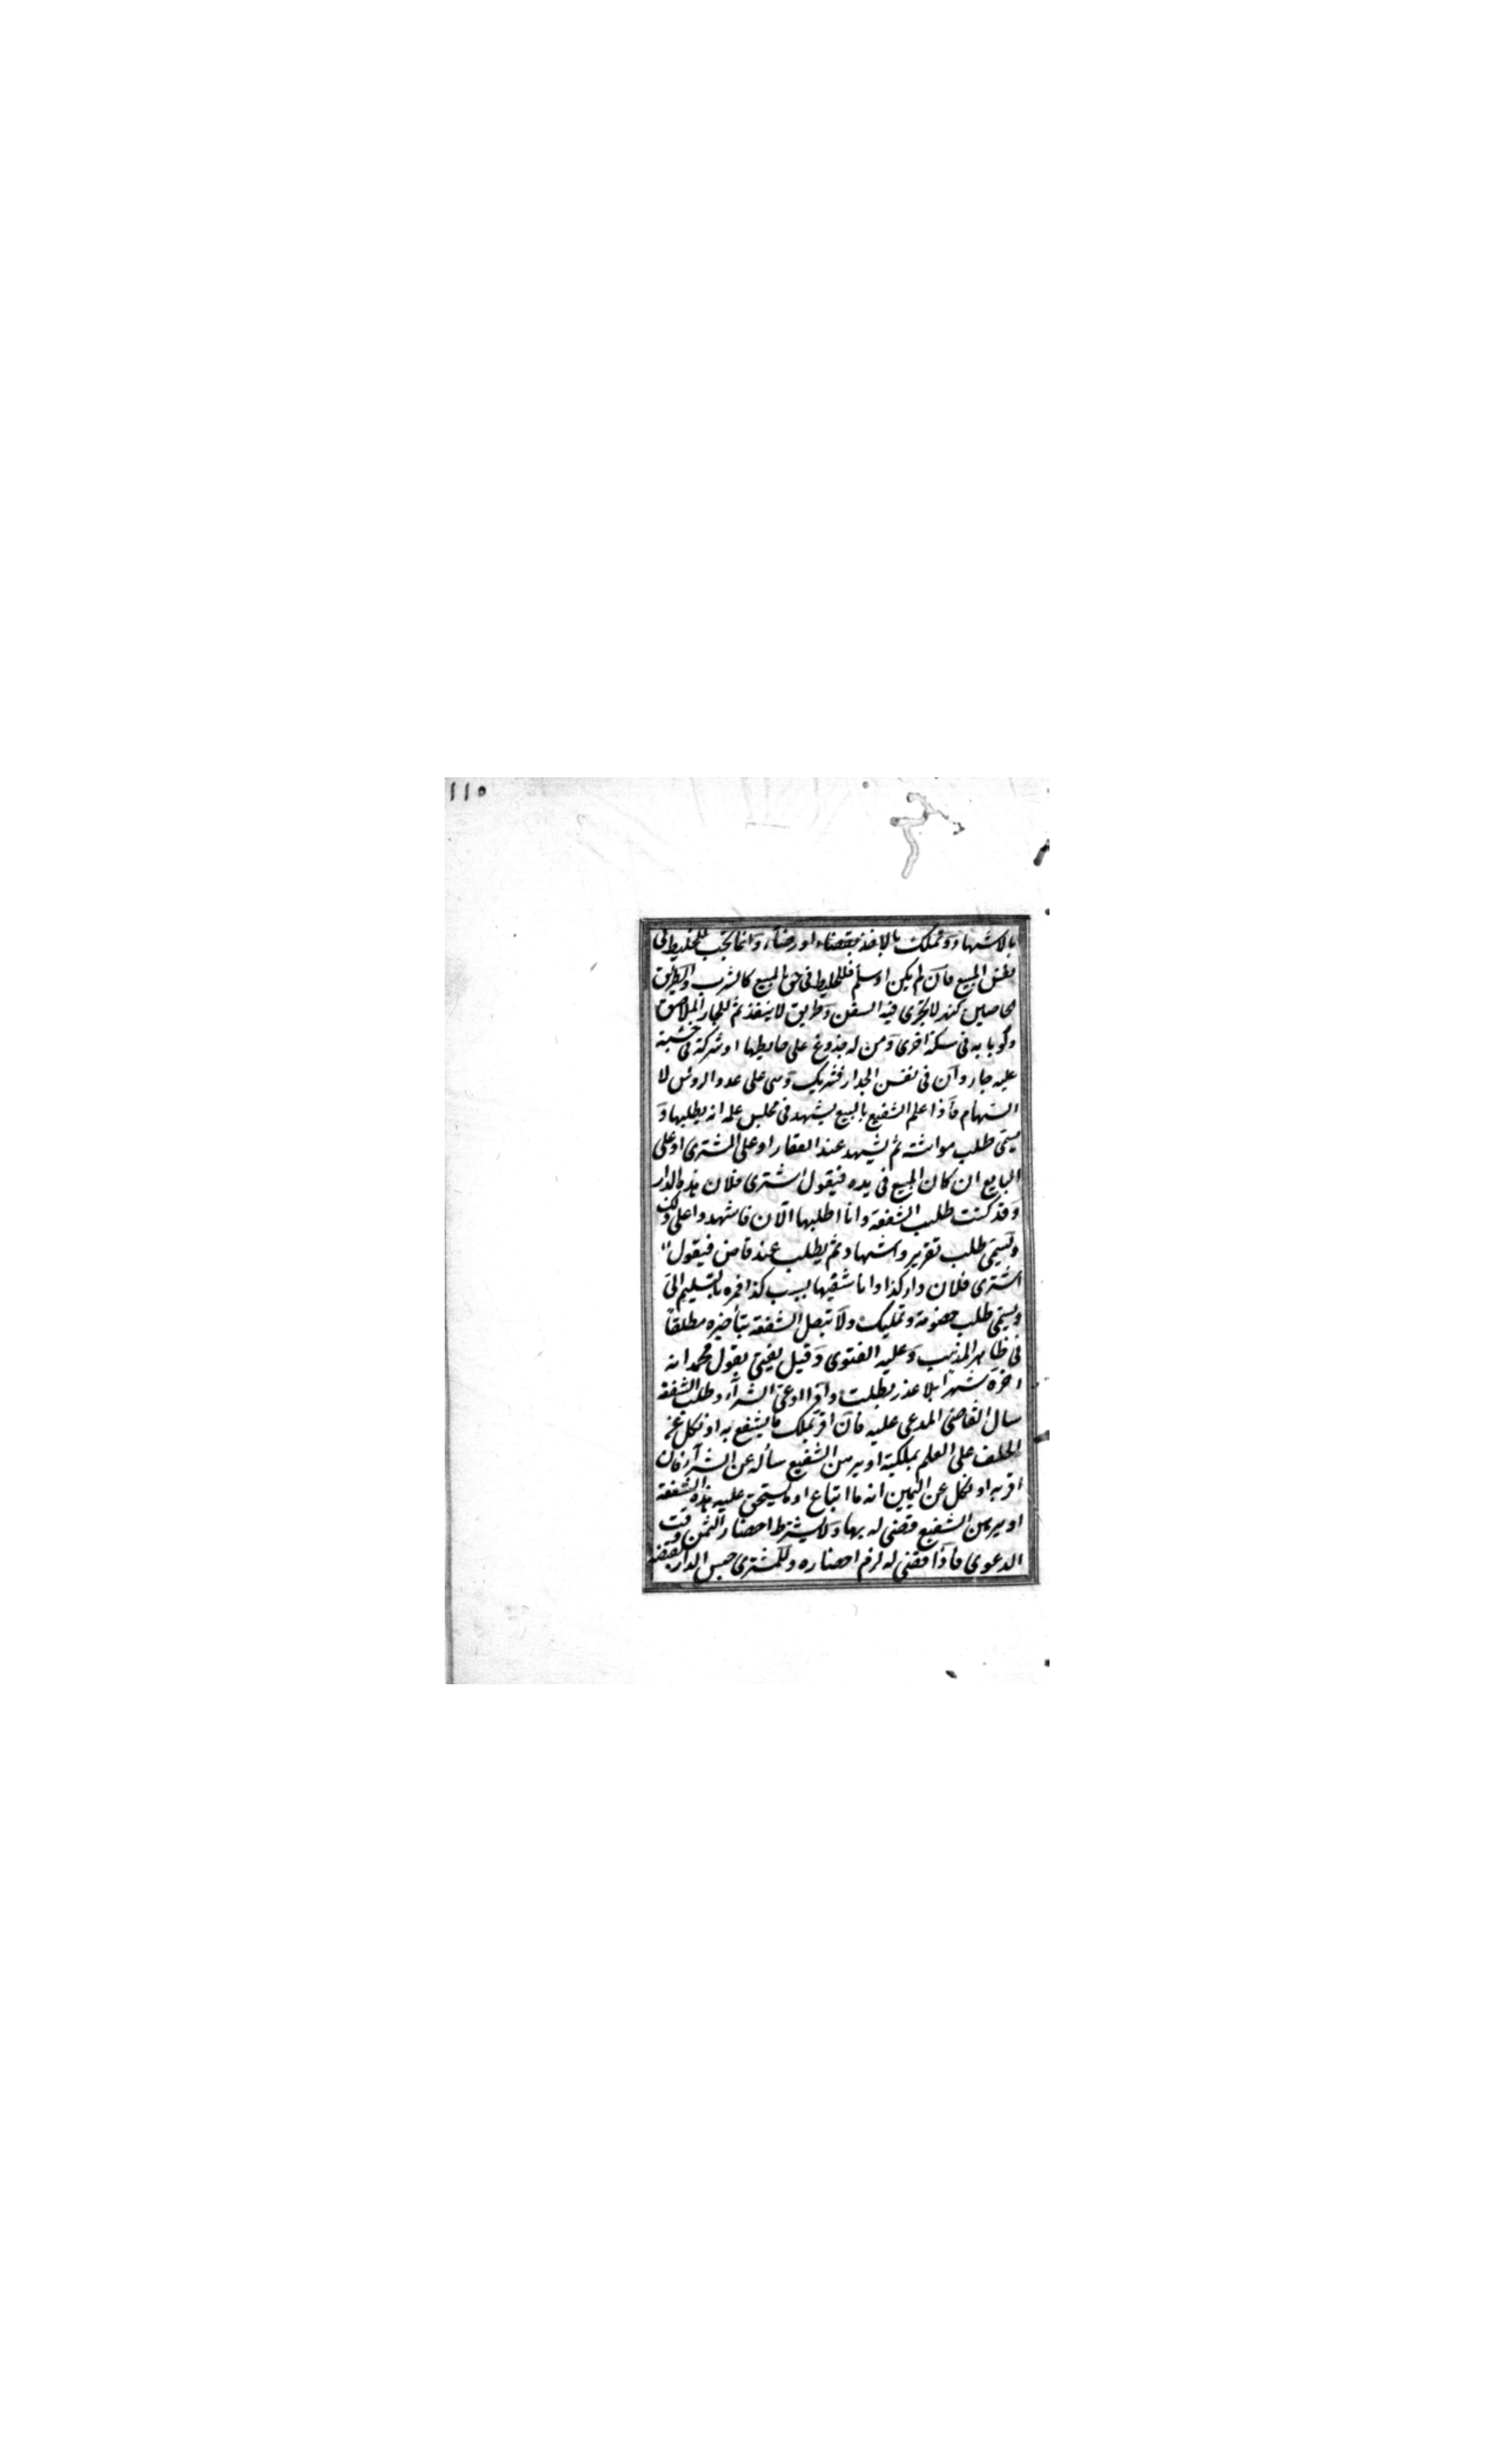 ١١٥
بالاشهاد وتملك بالاخذ بقضاء او رضاء وانما تجب للخليط فى
نفس المبيع فان لم يكن او سلم فللخليط فى حق المبيع كالشرب والطريق
الخاصين كنهر لا تجرى فيه السفن وطريق لا ينفذ ثم للجار الملاصق
ولو بابه فى سكة اخرى ومن له جذوع على حايطها او شركة فى خشبة
عليه جار وان فى نفس الجدار فشريك وهى على عدد الروس لا
السهام فاذا علم الشفيع بالبيع يشهد فى مجلس علمه انه يطلبها و
يسمى طلب مواثبة ثم يشهد عند العقار او على المشترى او على
البايع ان كان المبيع فى يده فيقول اشترى فلان هذه الدار
وقد كنت طلبت الشفعة وانا اطلبها الآن فاشهدوا على ذلك
ويسمى طلب تقرير واشهاد ثم يطلب عند قاض فيقول
اشترى فلان دار كذا وانا شفيعها بسبب كذا فمره بالتسليم الى
ويسمى طلب خصومة وتمليك ولا تبطل الشفعة بتأخيره مطلقا
فى ظاهر المذهب وعليه الفتوى وقيل يفتى بقول محمد انه
اخره شهرا بلا عذر بطلت واذا ادعى الشرآء وطلب الشفعة
سال القاضى المدعى عليه فان اقر بملك ما يشفع به او نكل عن
الحلف على العلم بملكيته او برهن الشفيع سأله عن الشرآء فان
اقر به او نكل عن اليمين انه ما ابتاع او ما يستحق عليه هذه الشفعة
او برهن الشفيع قضى له بها ولا يشترط احضار الثمن وقت
الدعوى فاذا قضى له لزم احضاره وللمشترى حبس الدار لقبضه